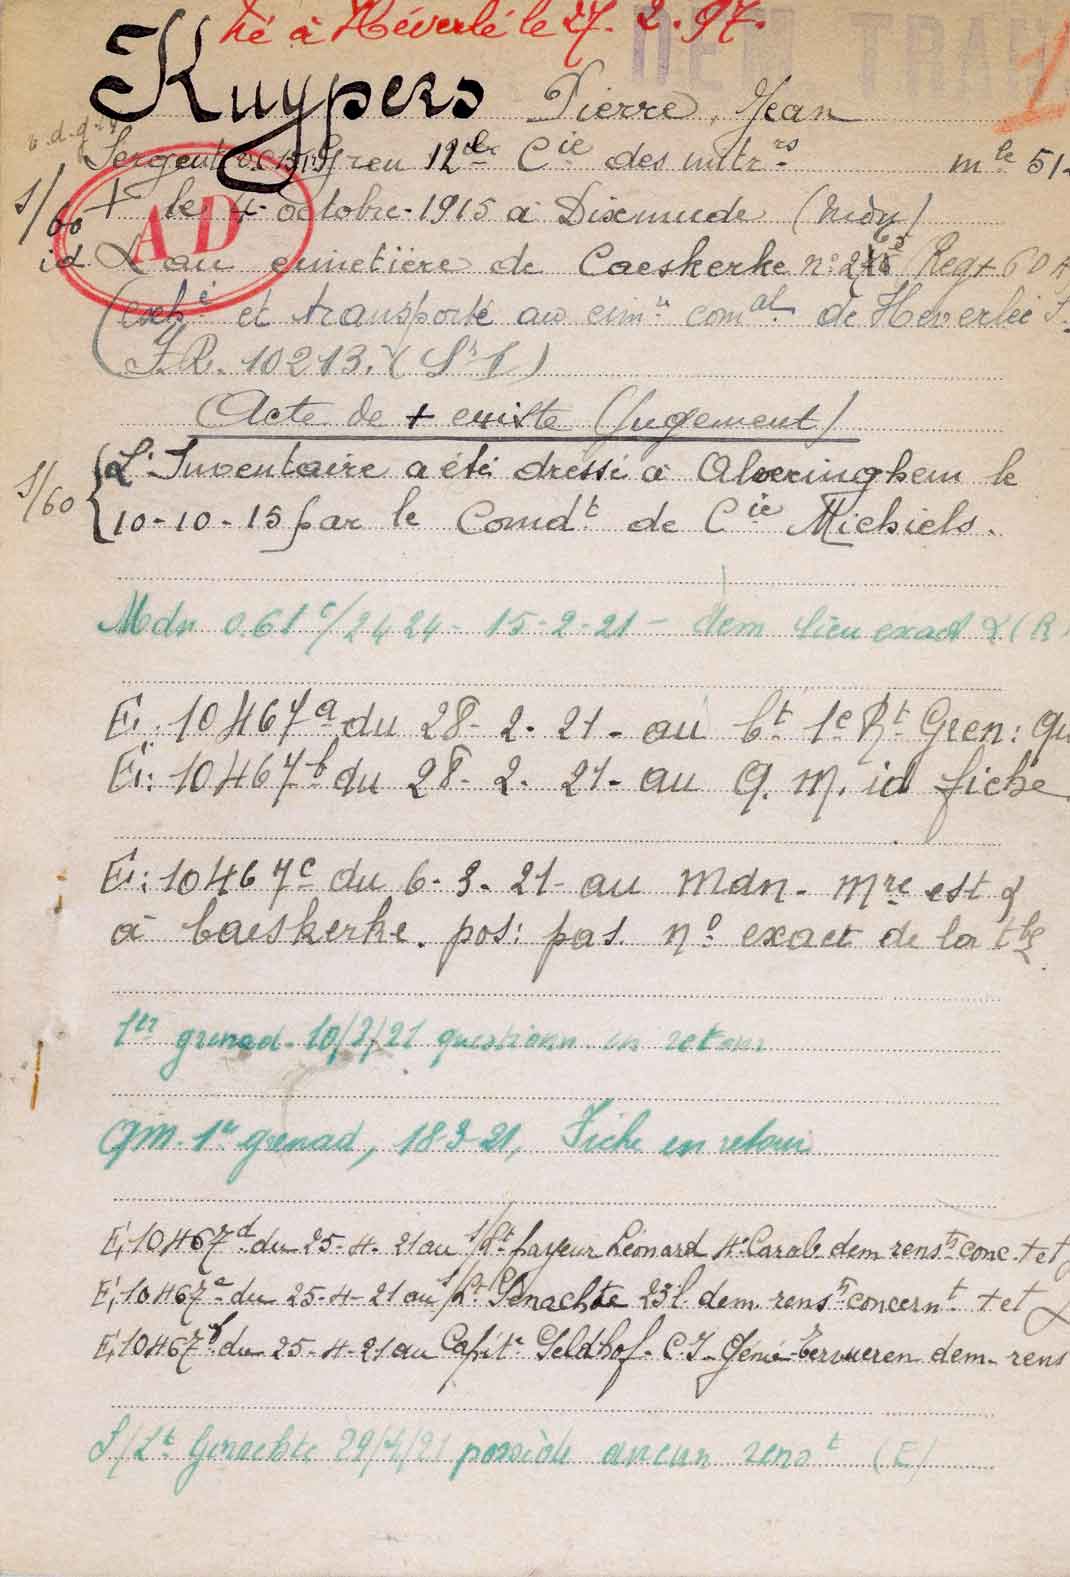 né à Héverlé le 27. 2. 97.
DEM TRAN
Kuypers Pierre, Jean
1
b.d.g.
Sergent gren 12de Cie des mitrrs mle 51
+ le 4 octobre 1915 à Dixmude (mdn)
S/60
AD
id au cimetière de Caeskerke n° Reg +60
(exhé et transporté au cimre comal de Heverlée
(J.R. 10213.
(Acte de + existe (Jugement)
S/60
L'Inventaire a été dressé à Alveringhem le
10-10-15 par le Comdt de Cie Michiels.
Mdn 0.61c/2424 - 15-2-21 - dem lieu exact (R
E. 10467a du 28-2-21 - au bt 1e Rt Gren: qu
E: 10467b du 28-2-21 - au Q. M. id fiche
E: 10467c du 6-3-21 - au Mdn - Mre est
à Caeskerke. pos: pas n° exact de la tbe
1er grenad. 10/3/21 questionn en retour
QM 1er grenad, 18-3-21, Fiche en retour
E, 10467d du 25-4-21 au S/Lt payeur Léonard 4e Carab dem renst conc. + et
E, 10467e du 25-4-21 au S/Lt Genachte 23 l. dem renst concernt + et
E, 10467f du 25-4-21 au Capitne Geldhof - C.I. Génie - Tervueren dem - rens
S/Lt Genachte 29/4/21 possède aucun renst (E)